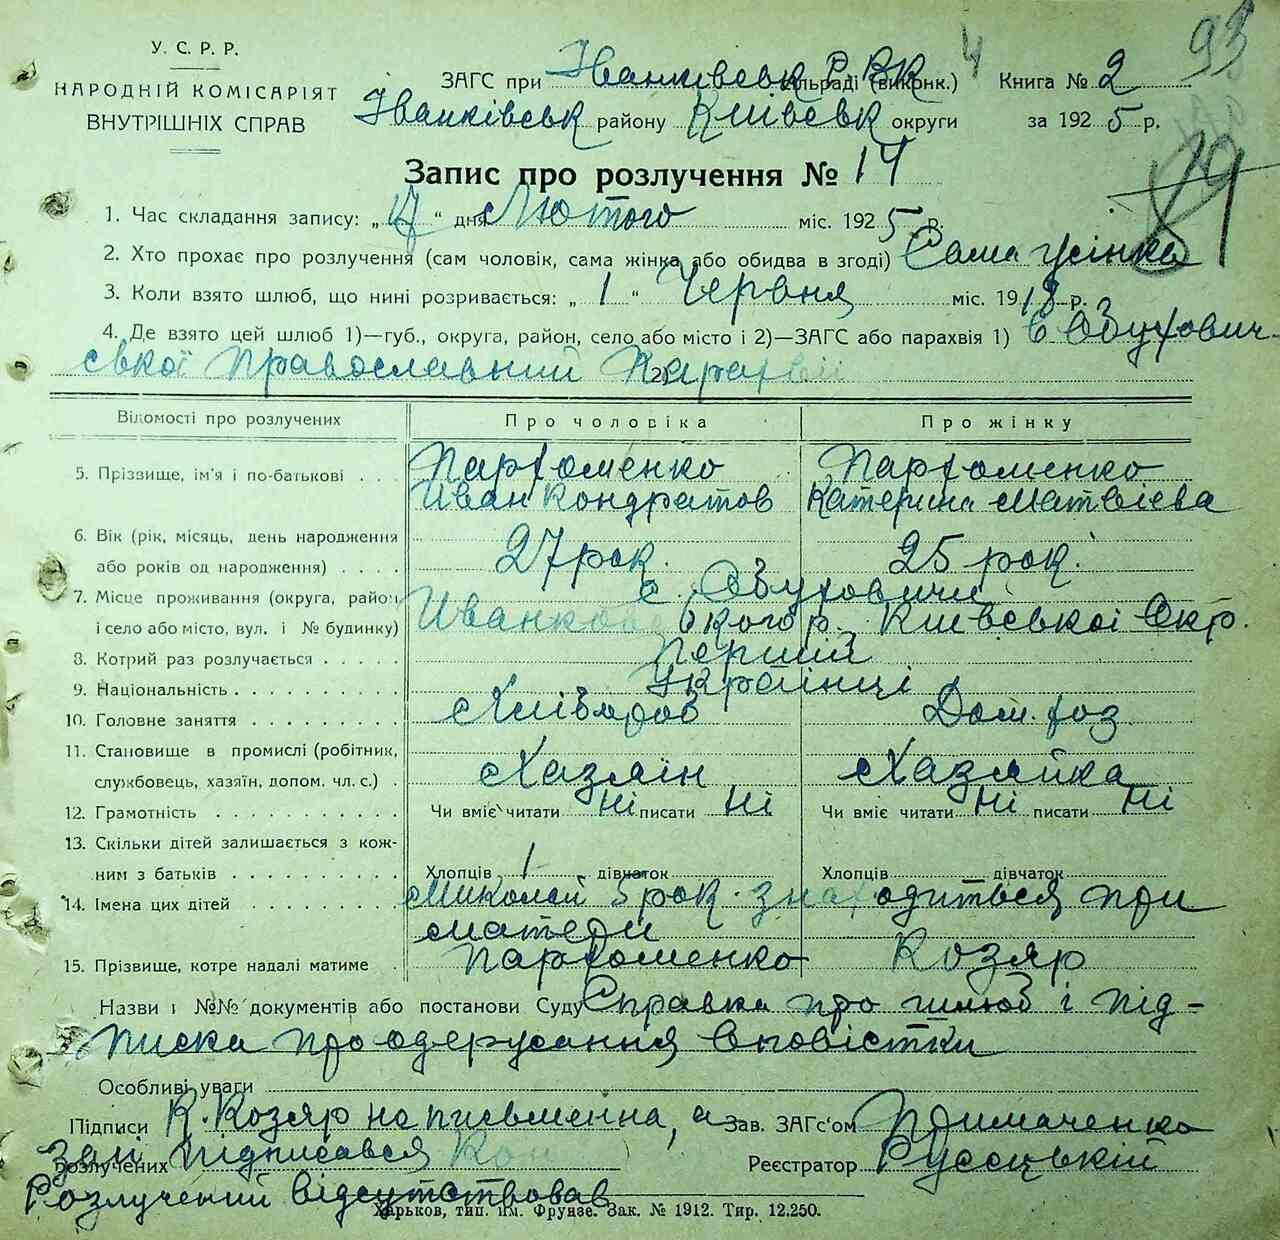 4 93
У. С. Р. Р.
НАРОДНІЙ КОМІСАРІЯТ
ВНУТРІШНІХ СПРАВ
ЗАГС при Іванківськ Р В К сільраді (виконк.) Книга № 2
Іванківськ району Київськ округи за 192 5 р.
Запис про розлучення № 14
1. Час складання запису: „ 17 “ дня Лютого міс. 192 5 р.
2. Хто прохає про розлучення (сам чоловік, сама жінка або обидва в згоді) Сама жінка
3. Коли взято шлюб, що нині розривається: „ 1 “ Червня міс. 19 18 р.
4. Де взято цей шлюб 1)—губ., округа, район, село або місто і 2)—ЗАГС або парахвія 1) в Обухович-
ської православний 2) Парахвії
Відомості про розлучених Про чоловіка Про жінку
5. Прізвище, ім'я і по-батькові . . . Пархоменко Пархоменко
Иван Кондратов Катерина Матвіева
6. Вік (рік, місяць, день народження
або років од народження) . . . . 27 рок. 25 рок.
7. Місце проживання (округа, район с. Обуховичи
і село або місто, вул. і № будинку) Иванковського р. Київської Окр.
8. Котрий раз розлучається . . . . . Перший
9. Національність . . . . . . . . . . Українці
10. Головне заняття . . . . . . . . . Хліборов Дом. хоз.
11. Становище в промислі (робітник,
службовець, хазяїн, допом. чл. с.) . Хазяїн Хазяйка
12. Грамотність . . . . . . . . . . . Чи вміє читати ні писати ні Чи вміє читати ні писати ні
13. Скільки дітей залишається з кож-
ним з батьків . . . . . . . . . . Хлопців 1 дівчаток Хлопців дівчаток
14. Імена цих дітей . . . . . . . . Миколай 5 рок. знаходиться при
матери
15. Прізвище, котре надалі матиме . Пархоменко Козяр
Назви і №№ документів або постанови Суду Справка про шлюб і під-
писка про одержання вповістки
Особливі уваги
Підписи К. Козяр не письменна, а Зав. ЗАГС'ом Примаченко
розлучених підписався Реєстратор Русецький
Розлучений відсутствовав
Харьков, тип. ім. Фрунзе. Зак. № 1912. Тир. 12.250.